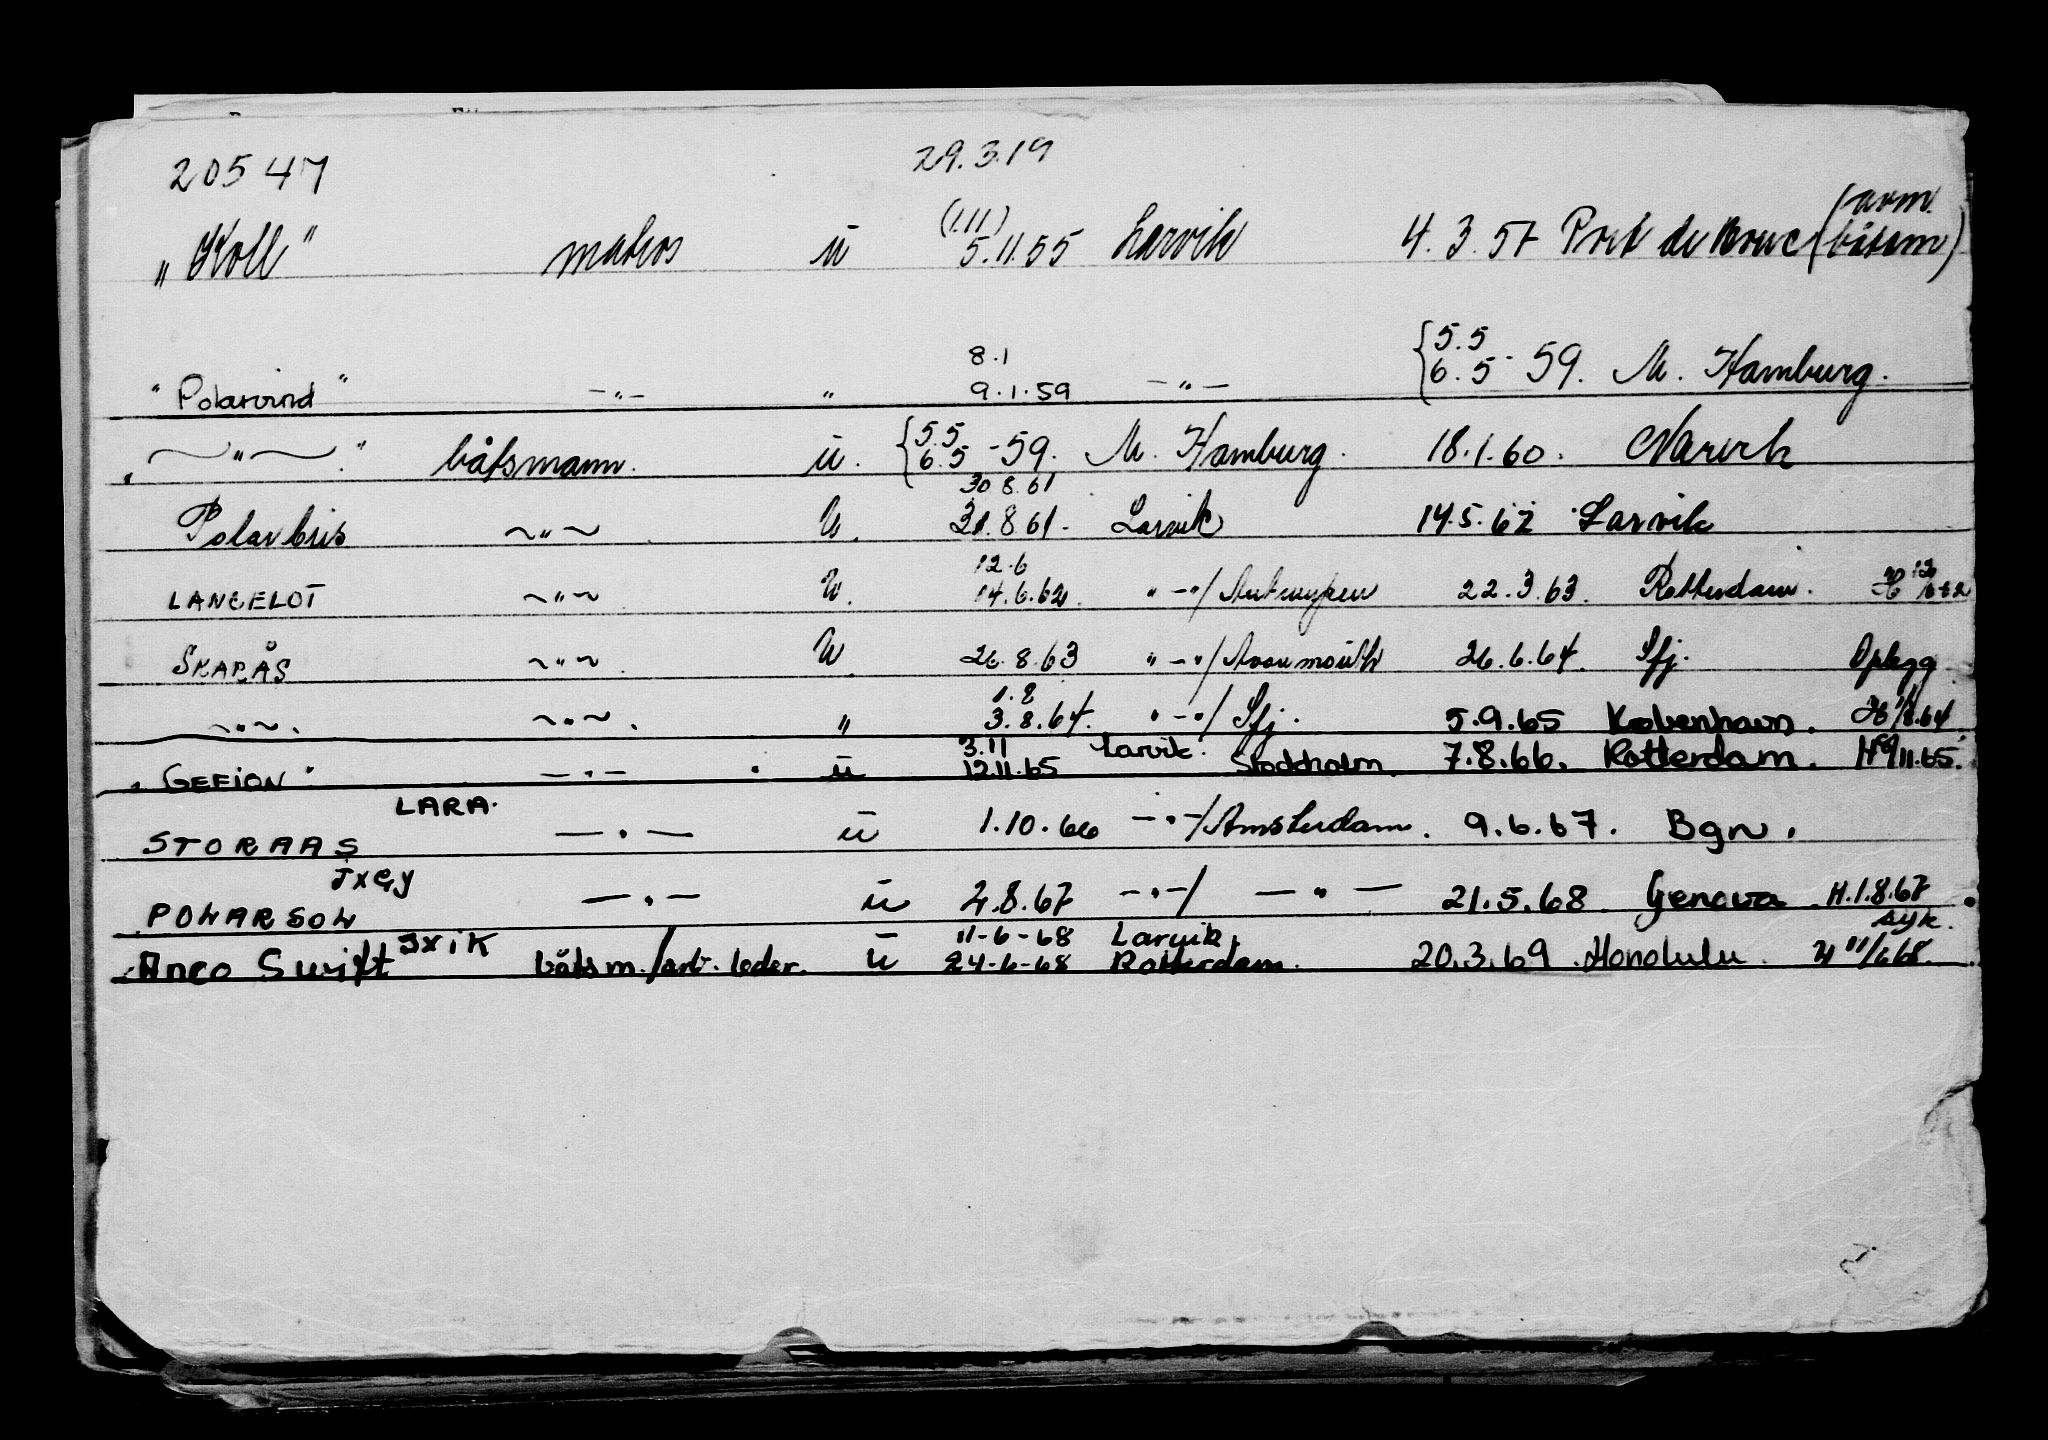 20547 29.3.19
(1.11) avm.
"Koll" matros ü 5.11.55 Larvik 4.3.57 Port de Bouc (båtsm)
8.1 {5.5
"Polarvind" -"- " 9.1.59 -"- 6.5-59. M. Hamburg.
"~"~" båtsmann. ü. {5.5 6.5 -59. M. Hamburg. 18.1.60. Narvik
30.8.61
Polarbris ~"~ U. 31.8.61- Larvik 14.5.62 Larvik
12.6
LANCELOT ~"~ U. 14.6.62. "-"/Antwerpen 22.3.63. Rotterdam.
SKARÅS ~"~ U. 26.8.63 "-"/Avonmouth 26.6.64. Sfj. Oplegg
1.8
~"~. ~"~. " 3.8.64. "-"/Sfj. 5.9.65 København. H 1/8.64
3.11 Larvik.
"GEFION" -"- ü 12.11.65 Stockholm. 7.8.66. Rotterdam. H 9/11.65.
LARA.
STORAAS -"- ü 1.10.66 -"-/Amsterdam. 9.6.67. Bgn.
JXGY
POLARSOL -"- ü 4.8.67 -"-/ -"- 21.5.68 Genova H.1.8.67
JXIK 11-6-68 Larvik, syk.
Anco Swift båtsm./arb.leder. ü 24-6-68 Rotterdam. 20.3.69 Honolulu H 11/6.68.